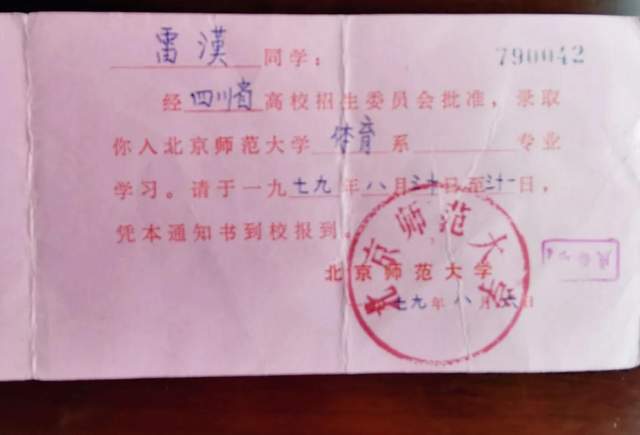 雷漢 同学： 790042
经四川省高校招生委员会批准，录取
你入北京师范大学 体育 系 专业
学习。请于一九七九年八月三十日至三十一日，
凭本通知书到校报到。
北京师范大学
七九年八月 日
北京师范大学